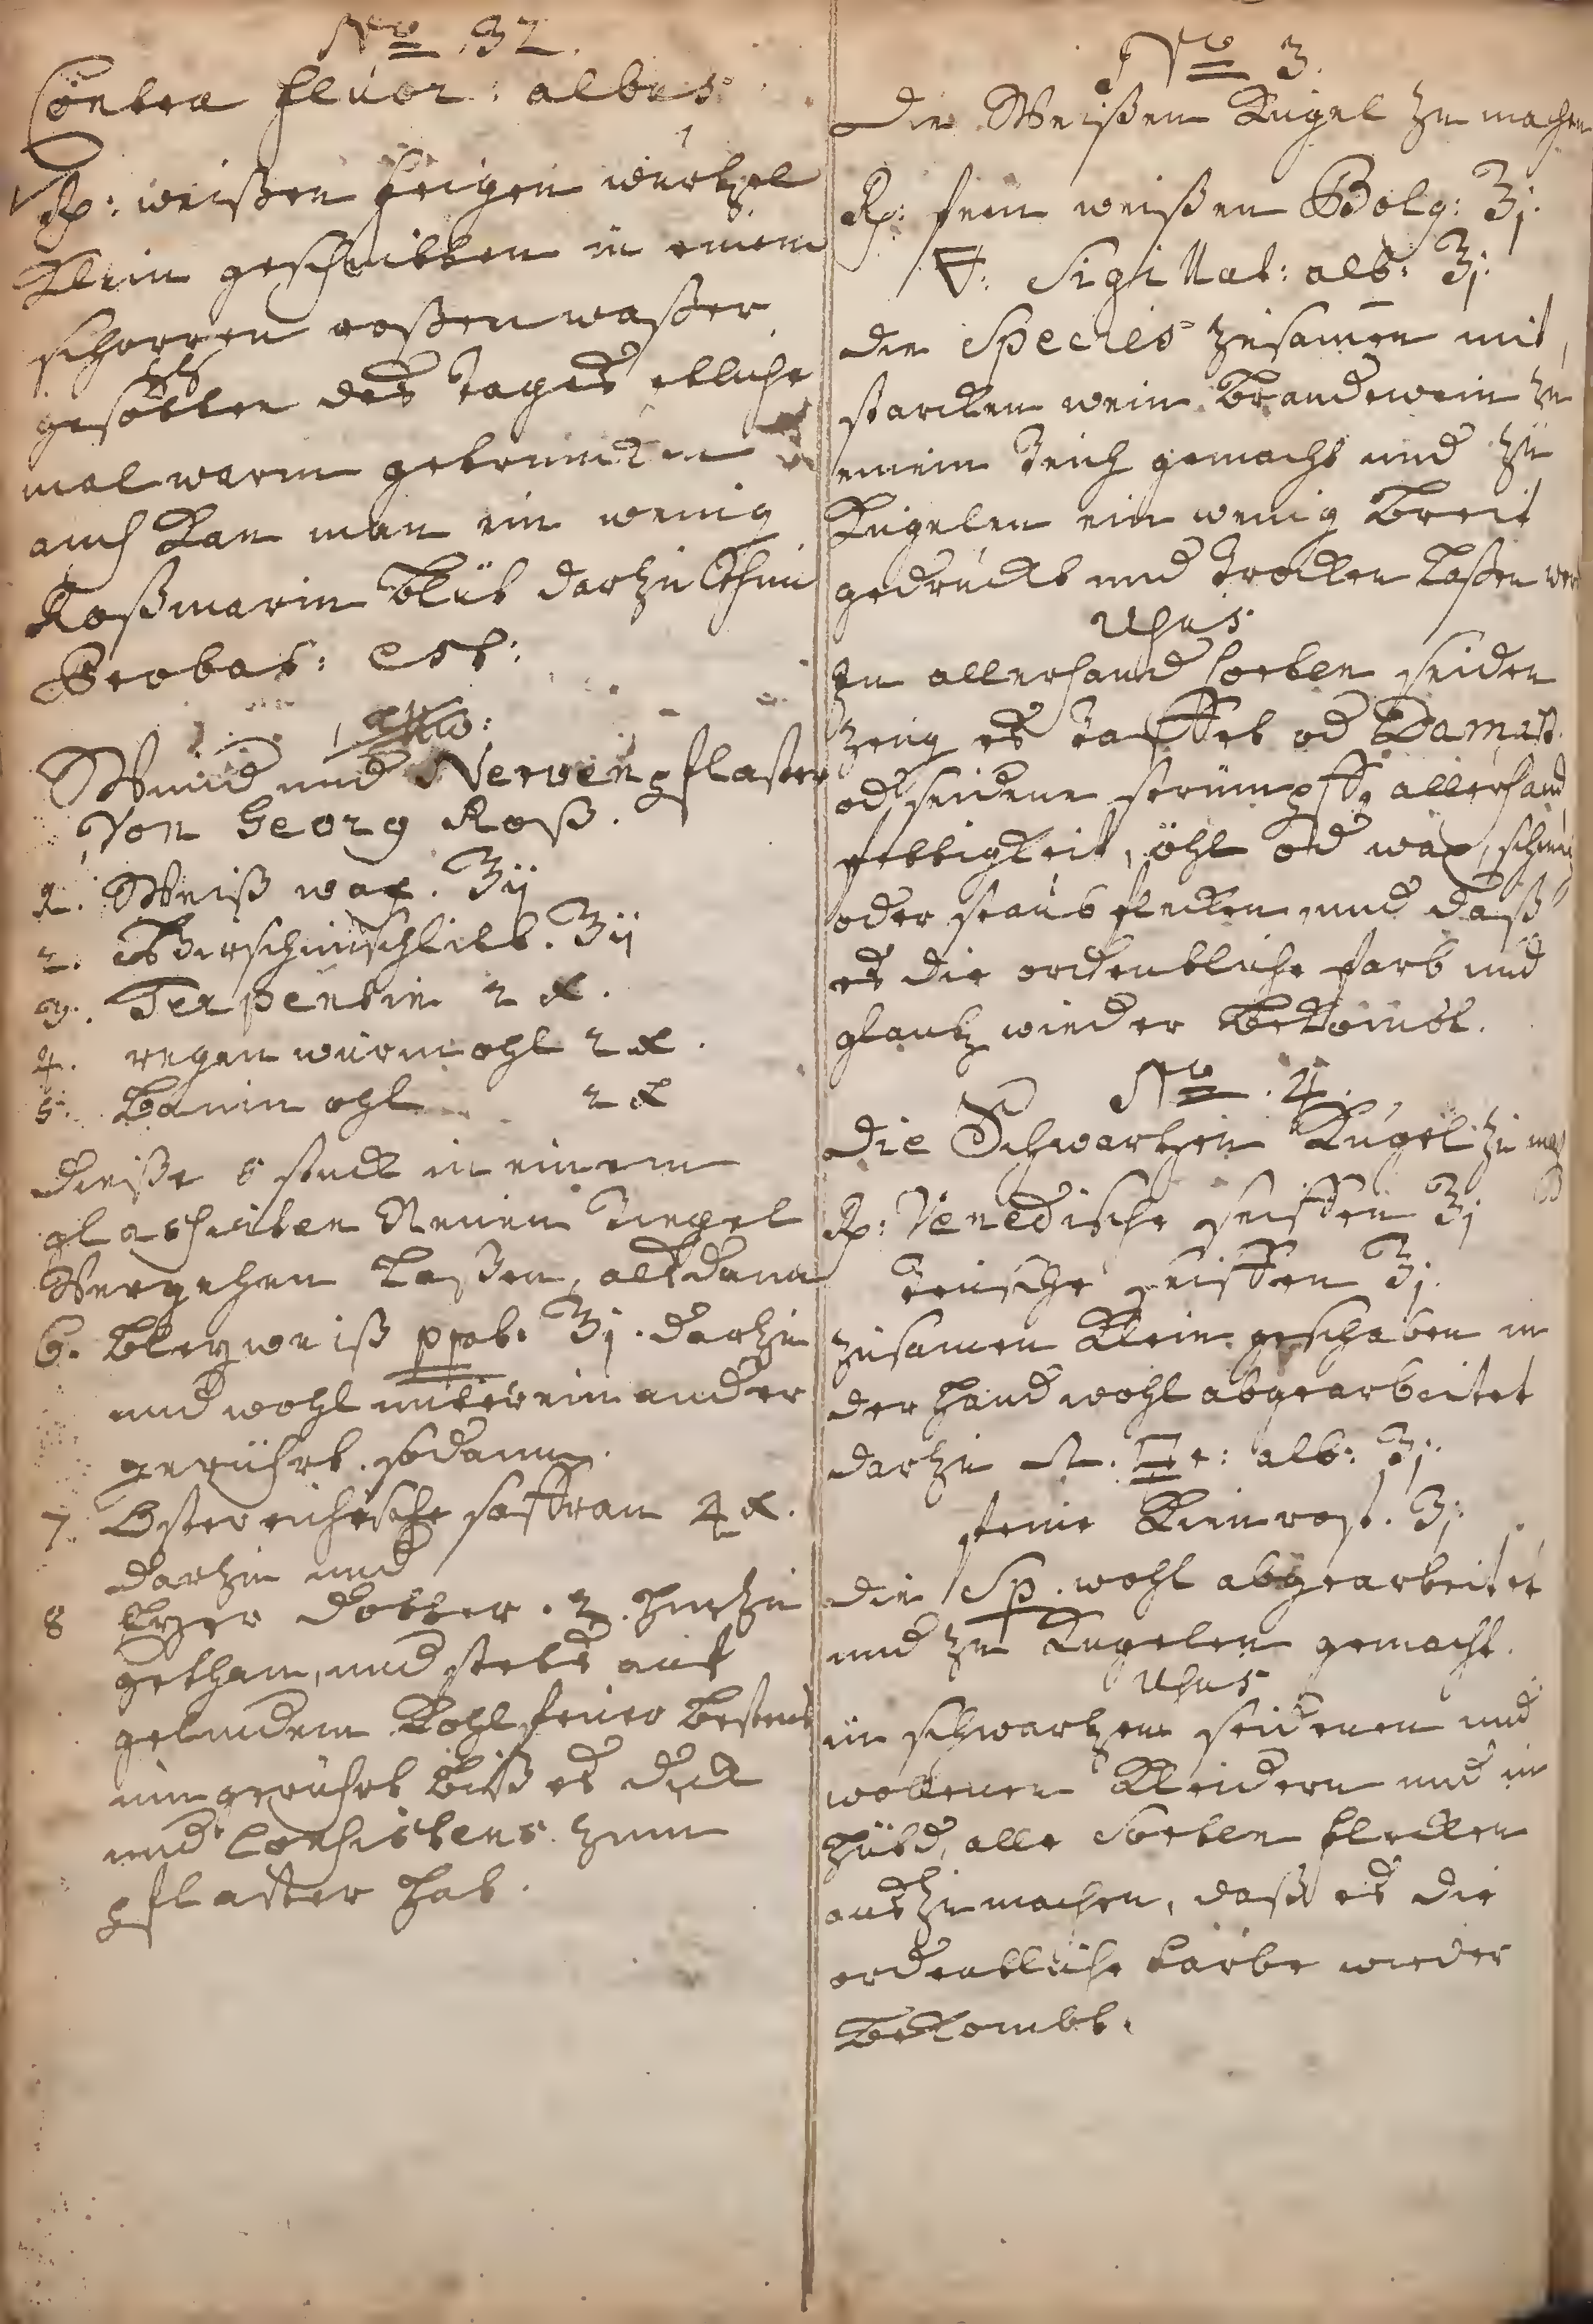 No 32.
Contra fluor: albus:
Rp: weißen feigen wurtzel
Klein geschnitten in einem
roßen waßer
gesotten des Tages etliche
mal warm getruncken
auch Kan man ein wenig
Roßmarin blüt darzu thun
Probat: est:
Wund und Nerven pflaster
Von Georg Roß.
1. Weiß wax. ℥ij
2. Hirschinschlitt. ℥ij
3. Terpentin 2
4. regen wurm ohl 2
5. baum ohl 2
dieße 5 stuck in einem
glasurten Neuen Tiegel
Vergehen laßen, alsdann
6. bleyweiß ppat. ℥j. darzu
und wohl untereinander
gerührt. sodann.
7. Ostereichische saffran 4
darzu und
8 Eyer dotter. 2. hinzu
gethan, und stets auf
gelindem Kohl feuer bestens
umgerührt biß es dick
und Consistens zum
pflaster hat.
No 3.
Die Weißen Kugel zu machen
Rp: fein weißen Bolg: ℥j.
🜃: Sigillat: alb: ℥j.
die Species zusamen mit
starcken wein Brandewein zu
einem Teich gemacht und zu
Kugelen ein wenig breit
gedruckt und Trocken laßen
Usus
In allerhand sorten seiden
zeug es Taffet od Damast
od seidene strümpff, allerhand
fettigkeit, öhl od wax,
oder staub flecken und daß
es die ordentliche farb und
glantz wieder bekombt.
No. 4.
Die Schwartzen Kugel zu
Rp: Venedische seiffen ℥j
Teusche seiffen ℥j.
zusamen Klein geschaben in
der Hand wohl abgearbeitet
darzu alb: ℥j.
feine Kienrost. ℥j.
die Sp. wohl abgearbeitet
und zu Kugelen gemacht.
Usus
in schwartzen seidenen und
wollenen Kleidern und in
Hüth, alle Sorten flecken
auszumachen, daß es die
ordentliche farbe wieder
bekombt.